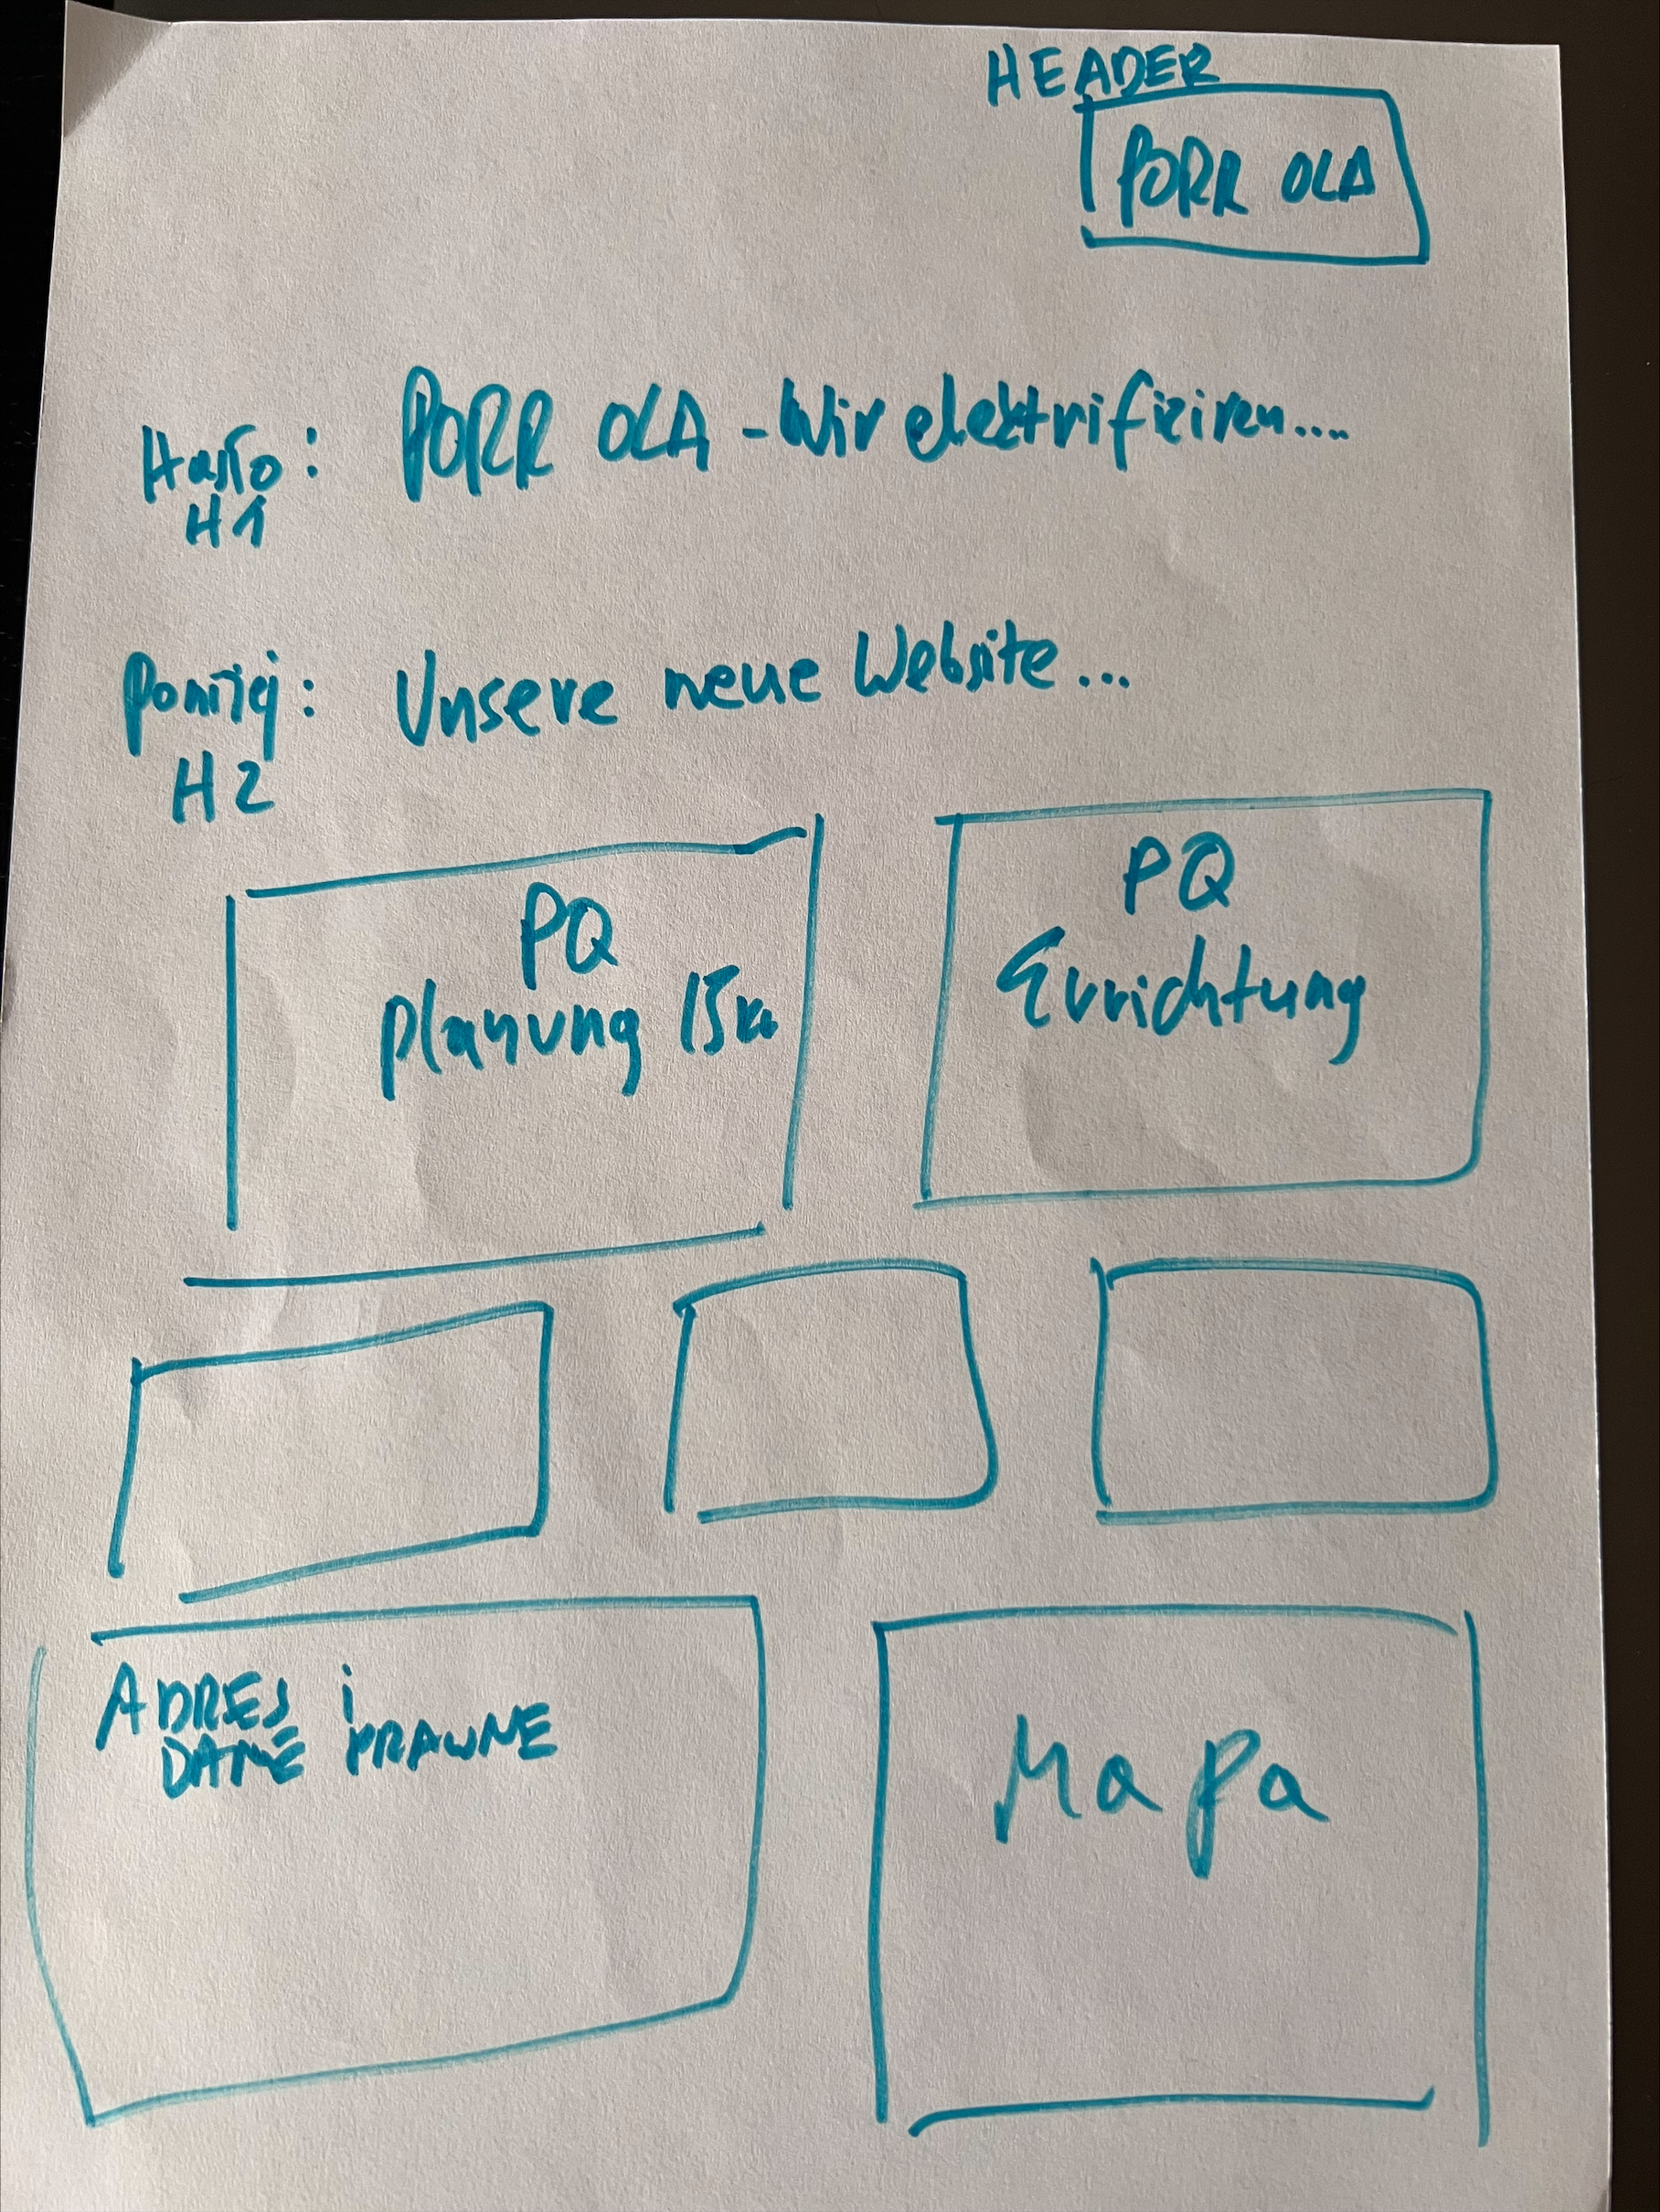 HEADER
PORR OLA
Hasło: PORR OLA - Wir elektrifiziren....
H1
Poniżej: Unsere neue Website...
H2
PQ
Planung 15kv
PQ
Errichtung
ADRES i
DANE PRAWNE
Mapa